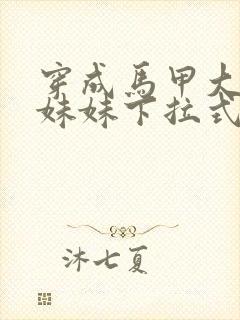 穿成馬甲大
妹妹下拉式
沐七夏